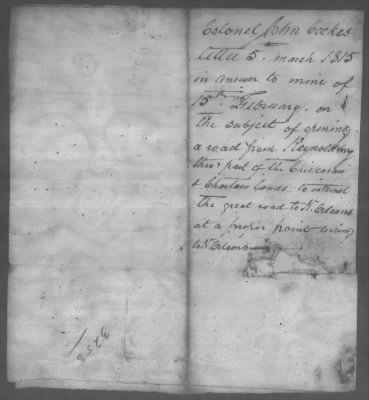 Colonel John Cockes
letter 5th march 1815
in answer to mine of
15th February. on
the subject of opening
a road from Reynoldsburg
thro' part of the Chickasaw
& Choctaw lands. to intersect
the great road to N. Orleans
at a proper point leading
to N. Orleans
3258